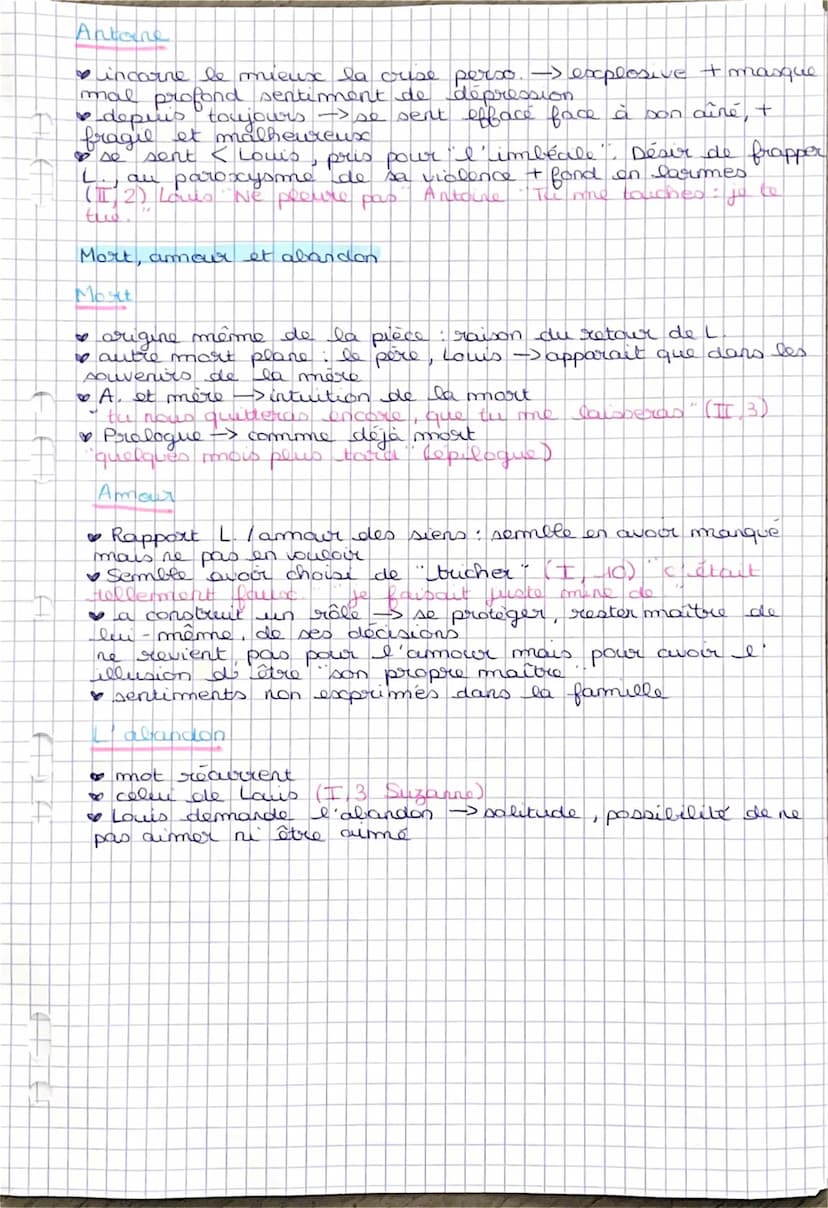 Antoine
♥ incarne le mieux la crise perso. → explosive + masque
mal profond sentiment de dépression
♥ depuis toujours → se sent effacé face à son aîné, +
fragil et malheureux
♥ se sent < Louis, pris pour "l'imbécile". Désir de frapper
L., au paroxysme de sa violence + fond en larmes
(II, 2) Louis "Ne pleure pas" Antoine "Tu me touches : je te
tue."
Mort, amour et abandon
Mort
♥ origine même de la pièce : raison du retour de L.
♥ autre mort plane : le père, Louis → apparait que dans les
souvenirs de la mère
♥ A. et mère → intuition de la mort
"tu nous quitteras encore, que tu me laisseras" (II, 3)
♥ Prologue → comme déjà mort
"quelques mois plus tard" (épilogue)
Amour
♥ Rapport L. / amour des siens : semble en avoir manqué
mais ne pas en vouloir
♥ Semble avoir choisi de "tricher" (I, 10) "c'était
tellement faux" "je faisait juste mine de"
♥ a construit un rôle → se protéger, rester maître de
lui-même, de ses décisions
ne revient pas pour l'amour mais pour avoir l'
illusion d'être "son propre maître"
♥ sentiments non exprimés dans la famille
L'abandon
♥ mot récurrent
♥ celui de Louis (I, 3 Suzanne)
♥ Louis demande l'abandon → solitude, possibilité de ne
pas aimer ni être aimé